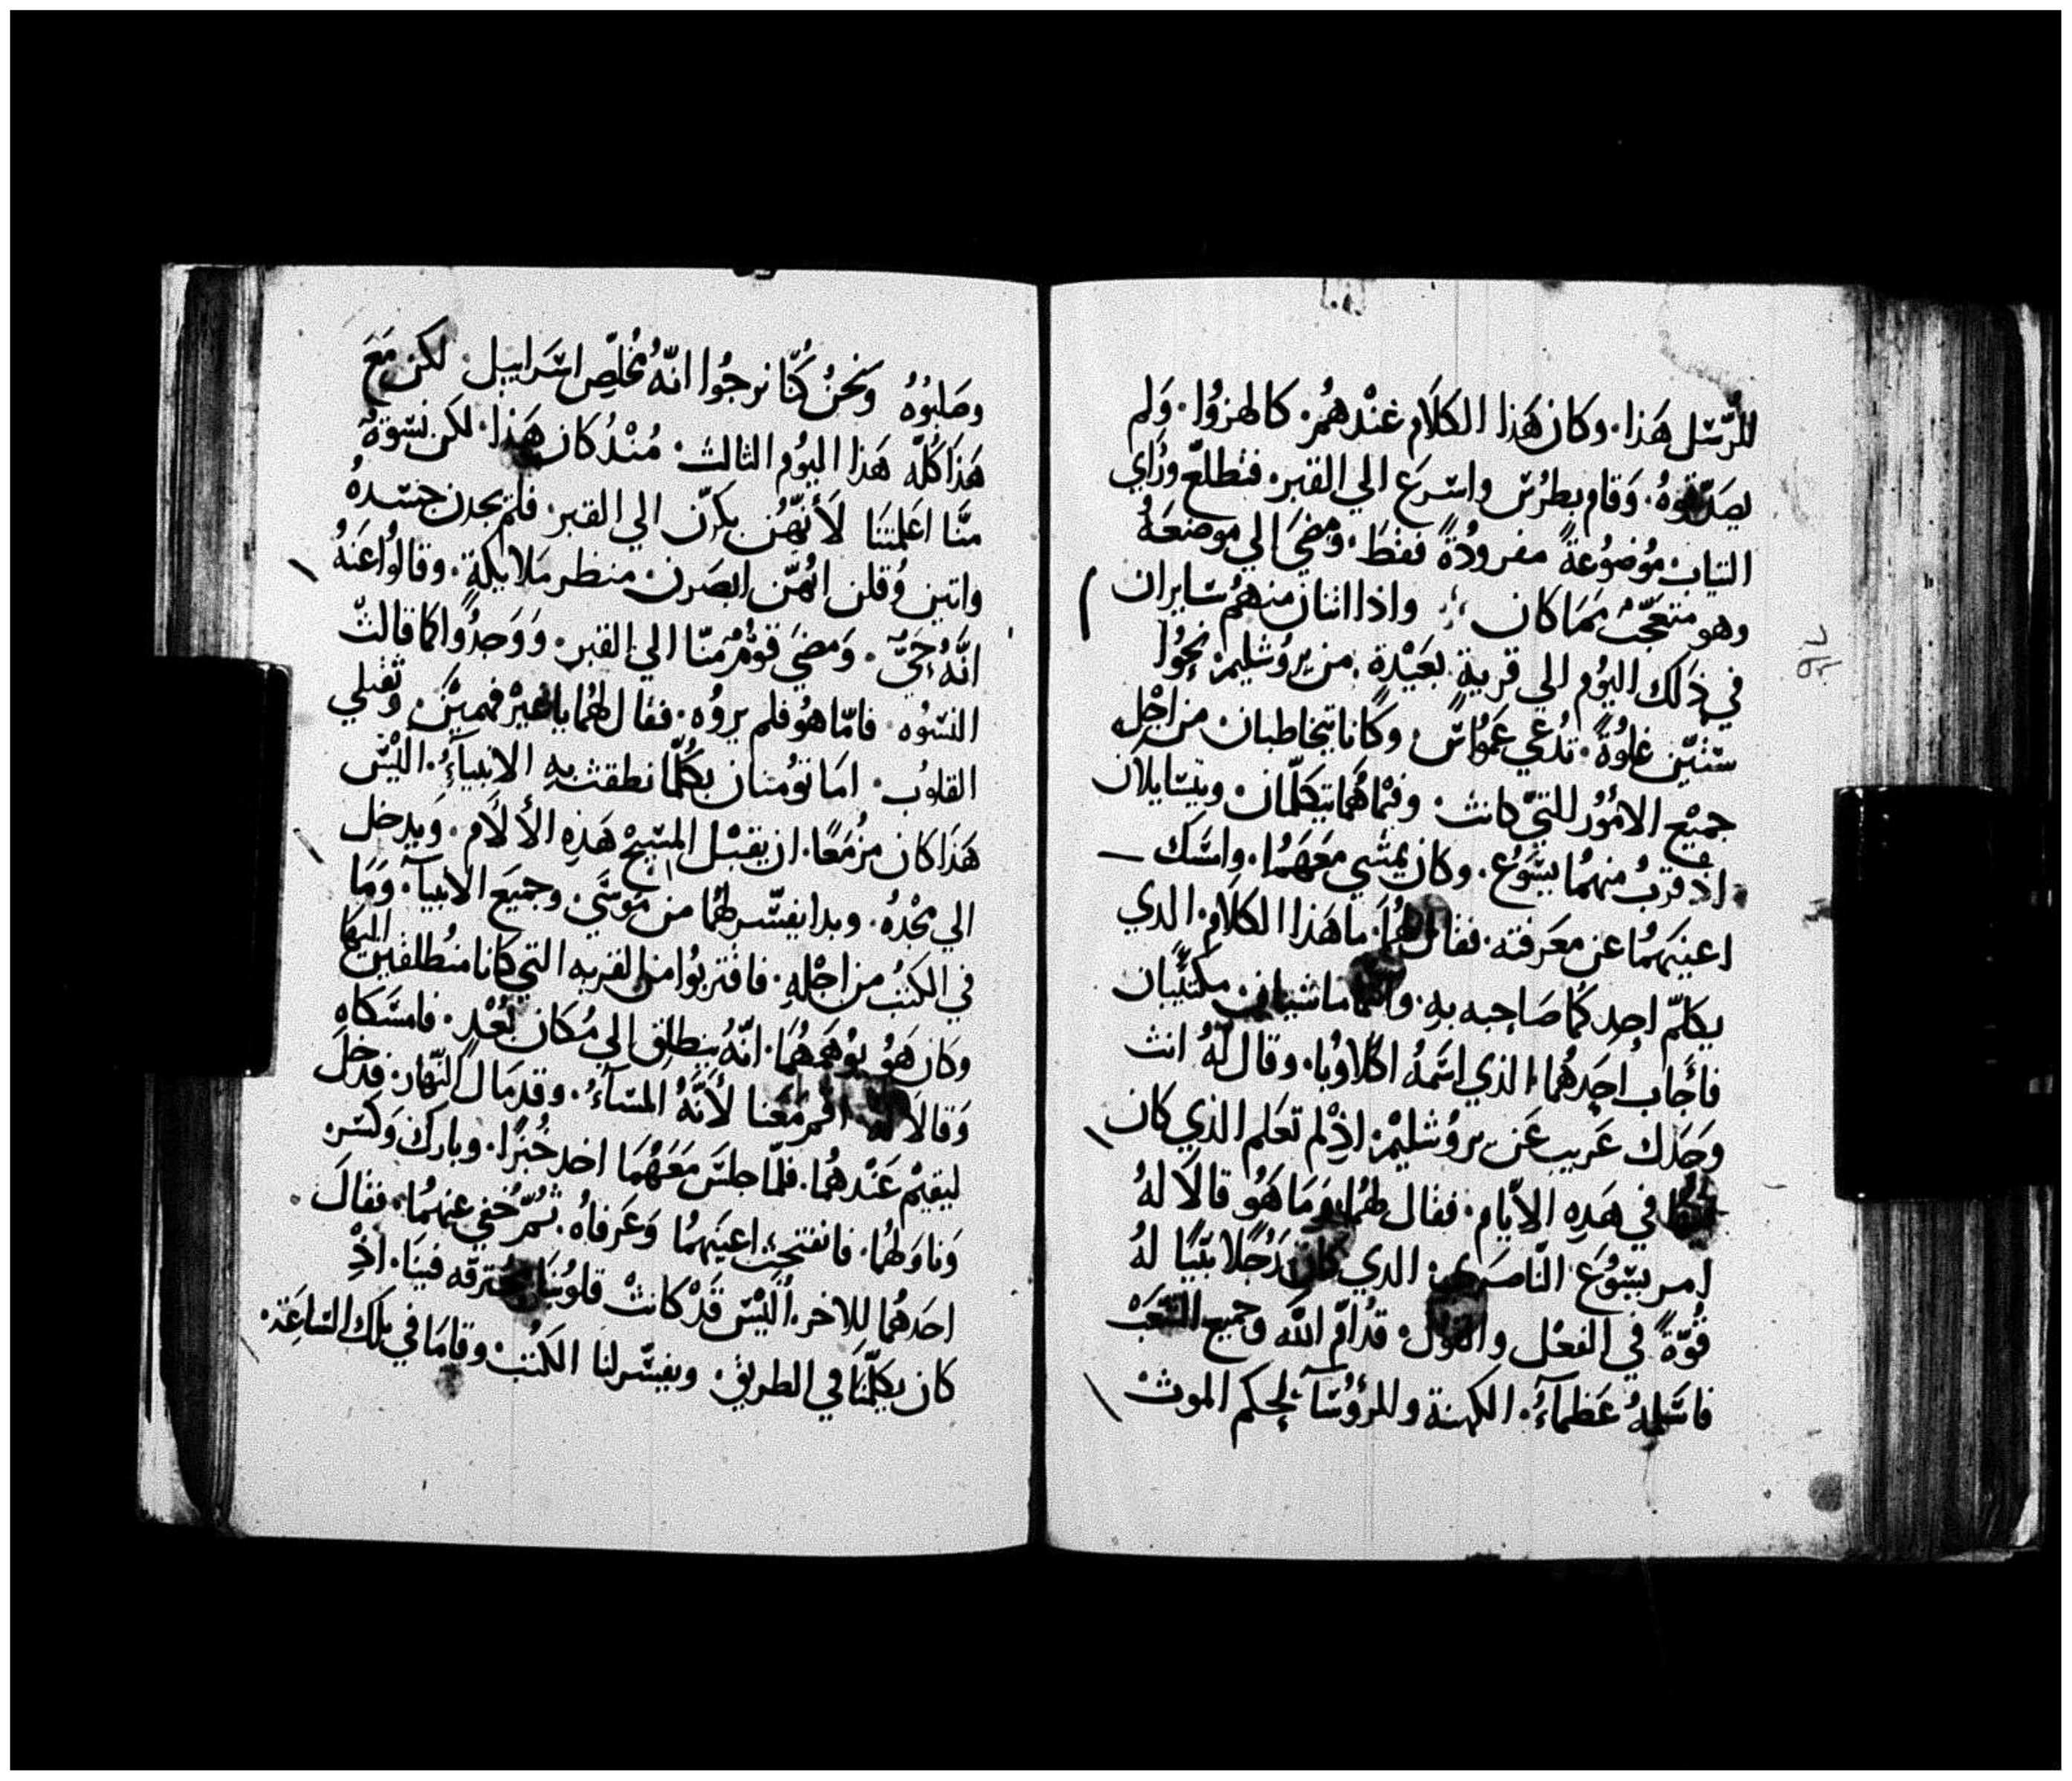 للرُّسُل هَذا. وكان هَذا الكلَام عنْدهُمْ كالهزوُا. وَلم
يصَدّقوهُ. وَقام بطرُس واسْرعَ الي القبر. فتطلعّ ورَاي
التياب موُضوُعةً مفرودُةً فقطَ. ومضَي الي موضعَهُ
وهو متعجّبٌ ممَا كان واذا اتنان منهمُ سَايران
في ذلك اليوُم الي قرية بعَيْدة من يروُشليمْ نحوُا
ستيّن غلوُةً. تدُعي عَموُاسّ وكانا يتخاطبان من اجْل
جميْع الاموُر اللتيّ كانت. وفيْما هُما يتكلّمان ويتسَايلان
اذ قربُ منهمُا يسَوُع. وكان يمشي معَهمُا. وامسَك
اعينهمُا عن معَرفته. فقال لهُما. ما هَذا الكلَام الدي
يكلمّ احدكمُا صَاحبه به. وانتما ماشيان مكتئبان
فأجَاب احَدهُما الذي اسمَهُ اكلاوبُا. وقال لهُ انت
وَحَدك غريب عَن يروُشليمْ. اذْ لم تعَلم الذي كان
في هَدهِ الايّام. فقال لهمُا. وَمَا هَوُ قالَا لهُ
امر يسَوُع الناّصَري الدي كان رَجُلا نبّيًا لهُ
قوُّةً في الفعْل والقول. قدُامّ اللّه وَجميع الشعَبْ
فاسَلمهُ عَظمآءُ الكهنة والرؤُسَآ لحكم الموت
وصَلبوُهُ وَنحنُ كُنّا نرجوُا انّهُ مُخلّص اسَراييل. لكن مَعَ
هَذا كُلّه هَذا اليوُم التالت. مُنْدُ كان هَذا. لكن نسْوَةٌ
منّا اعَلمتنَا لَأنهُّن بكرّن الي القبر. فلمْ يجدن جسَدهُ
واتين وُقلن انهُّن ابصَرن منظر مَلايكةٍ. وقالوُا عَنهُ
انهَّ حَيّ. وَمضَي قوْمٌ منّا الي القبر. وَوَجدُوا كما قالت
النسْوُه. فامّا هوُ فلم يروُه. فقال لهُما يا غيْر فهمَيْن وتقيلي
القلوُب. امَا توُمنان بكُلّما نطقت بهِ الانبيآءُ. اليْسَ
هَذا كان مزُمعًا. ان يقبْل المسَيحْ هَذهِ الألَام. وَيدخل
الي مجْدهُ. وبدا يفسّر لهُما من مُوسَي وجميَع الانبيآ. وَمَا
في الكتبُ من اجْلهِ. فاقتربوُا من القريه التي كانا منُطلقين اليها
وكان هَوُ يوُهمَهُمَا. انّهُ ينطلق الي مُكان بعُدٍ. فامسَكاه
وَقالَا لهُ اقم مَعَنا لَأنّهُ المسَآءُ. وقد مَال النهّار. فدخل
ليقيمْ عَنْدهمُا. فلمّا جلسَ مَعَهُمَا اخد خُبزًا. وباركَ وَكسَر
وَناوَلهمُا. فانفتحت اعينَهمُا وَعَرفاهُ. تمُّ خُفي عنهمُا. فقالَ
احَدهُما للاخر. ألَيْسَ قَدْ كانتْ قلوُبنَا مُحترقه فينَا. اذْ
كان يكلّمَنَا في الطريق. ويفسّر لنا الكُتبْ وقامَا في تلكَ السّاعَة.